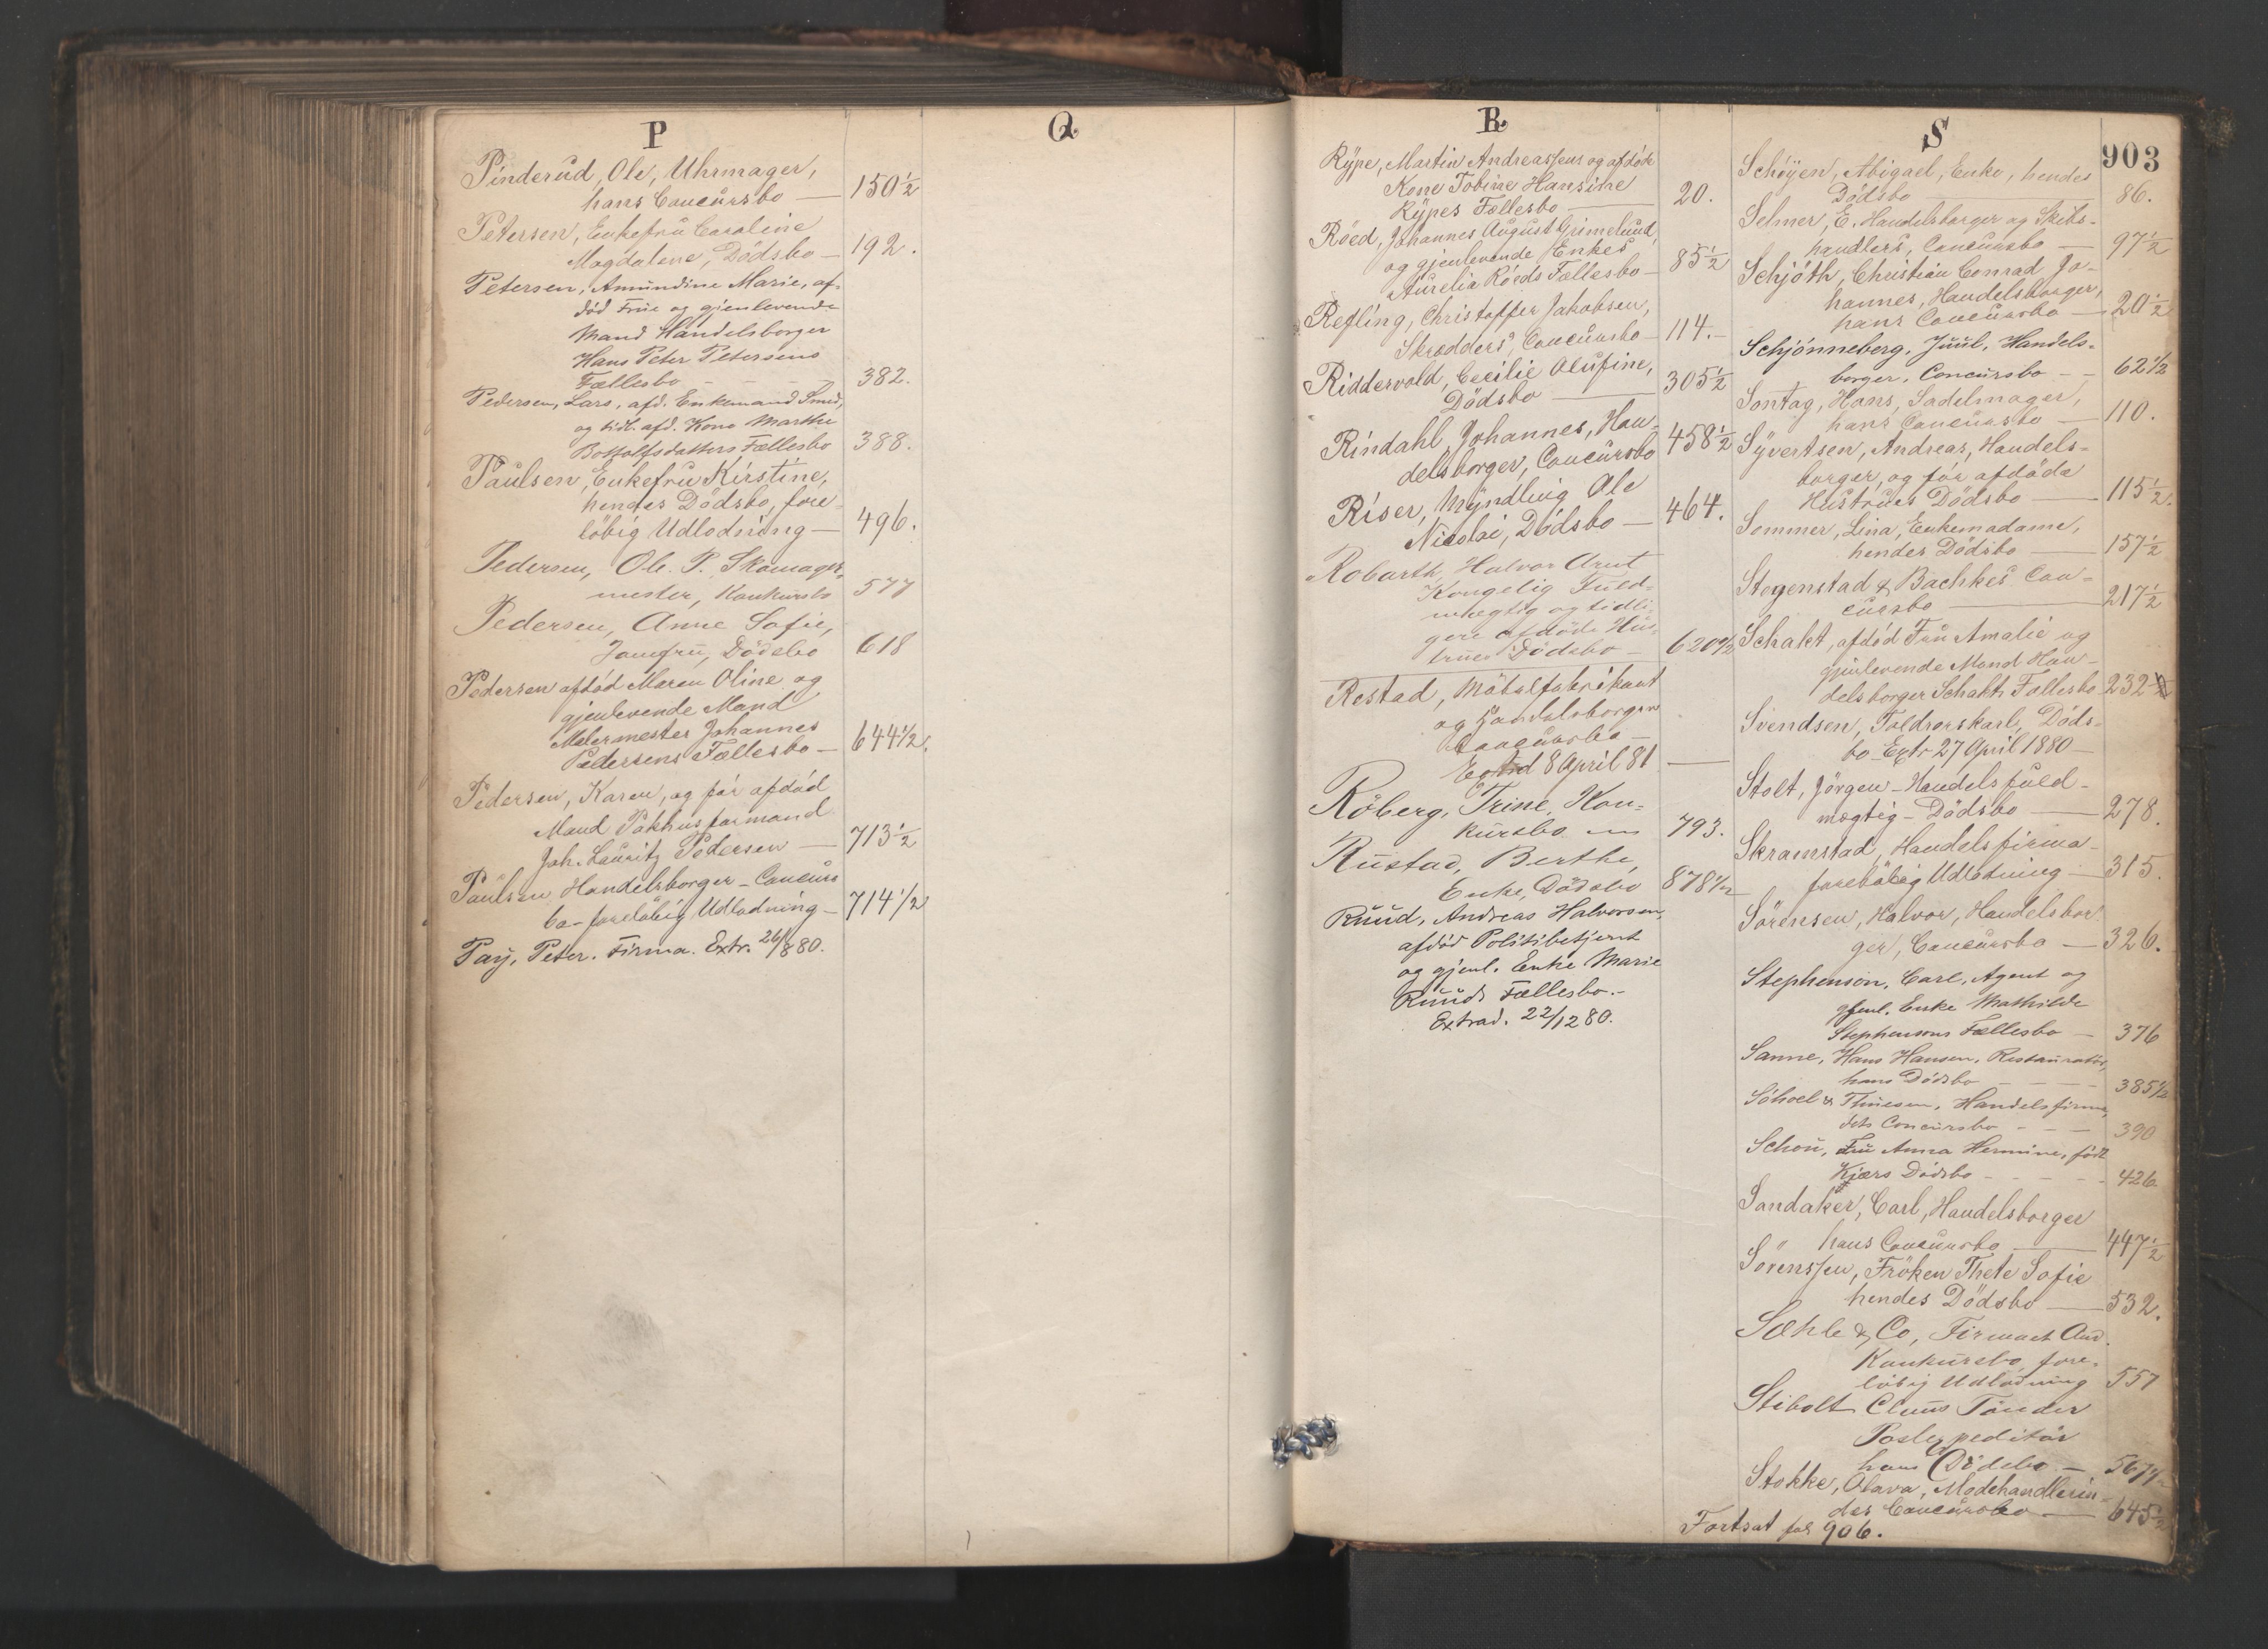 P
Pinderud, Ole, Uhrmager,
hans Concursbo — 150½
Petersen, Enkefru Caroline
Magdalene, Dödsbo — 192.
Petersen, Amundine Marie, af-
död Frue og gjenlevende
Mand Handelsborger
Hans Peter Petersens
Fællesbo - - - - 382.
Pedersen, Lars, afd. Enkemand Smed,
og tidl. afd. Kone Marthe
Bottolfsdatters Fællesbo 388.
Paulsen, Enkefru Kirstine,
hendes Dödsbo, fore-
löbig Udlodning — 496.
Pedersen, Ole P. Skomager
mester, Konkursbo 577
Pedersen, Anne Sofie,
Jomfru, Dödsbo 618
Pedersen afdöd Maren Oline og
gjenlevende Mand
Malermester Johannes
Pedersens Fællesbo — 644½.
Pedersen, Karen, og för afdöd
Mand Pakhusformand
Joh. Lauritz Pedersen — 713½
Paulsen Handelsborger - Concurs
bo - foreløbig Udlodning — 714½
Pay, Peter. Firma. Extr. 26/8 80.
Q
R
Rype, Martin Andreassens og afdöde
Kone Tobine Hansine
Rypes Fællesbo — 20.
Röed, Johannes August Grimelund,
og gjenlevende Enkes
Aurelia Röeds Fællesbo — 85½
Refling, Christoffer Jakobsen,
Skrædders, Concursbo — 114.-
Riddervold, Cecilie Olufine,
Dödsbo — 305½
Rindahl, Johannes, Han-
delsborger, Concursbo 458½
Riser, Myndling Ole
Nicolai, Dödsbo — 464.
Robarth, Halvor Arnt
Kongelig Fuld-
mægtig og tidli-
gere afdöde Hus-
trues Dödsbo — 620½
Restad, Möbelfabrikant
og Handelsborger
Concursbo —
Extrd 8 April 81 —
Röberg, Trine, Kon-
kursbo 793.
Rustad, Berthe,
Enke, Dödsbo 878½
Ruud, Andreas Halvorsen,
afdöd Politibetjent
og gjenl. Enke Marie
Ruuds Fællesbo.-
Extrad. 22/12 80.
S
903
Schöyen, Abigael, Enke, hendes
Dödsbo — 86.
Selmer, E. Handelsborger og Skibs-
handlers, Concursbo — 97½
Schjöth, Christian Conrad Jo-
hannes, Handelsborger,
hans Concursbo — 20½
Schjönneberg, Juul, Handels-
borger, Concursbo - - 62½
Sontag, Hans, Sadelmager,
hans Concursbo — 110.
Syvertsen, Andreas, Handels-
borger, og för afdöde
Hustrues Dödsbo — 115½.
Sommer, Lina, Enkemadame,
hendes Dödsbo — 157½
Stogenstad & Bachkes Con-
cursbo — 217½
Schakt, afdöd Fru Amalie og
gjenlevende Mand Han-
delsborger Schakts Fællesbo 232
Svendsen, Toldrorskarl, Döds-
bo Extr 27 April 1880 —
Stolt, Jörgen - Handelsfuld-
mægtig - Dödsbo — 278.
Skramstad, Handelsfirma -
foreløbig Udlodning — 315.
Sörensen, Halvor, Handelsbor-
ger, Concursbo — 326.
Stephenson, Carl, Agent og
gjenl. Enke Mathilde
Stephensons Fællesbo — 376
Sanne, Hans Hansen, Restauratör,
hans Dödsbo - - - - 385½
Söhoel & Thuesen, Handelsfirma,
dets Concursbo - - - 390
Schou, Fru Anna Hermine, födt
Kjærs Dödsbo - - - - - 426.
Sandaker, Carl, Handelsborger
hans Concursbo — 447½
Sörenssen, Fröken Thete Sofie
hendes Dödsbo — 532.
Sæhle & Co, Firmaet And.
Konkursbo, fore-
löbig Udlodning 557
Stibolt Claus Tönder
Postexpeditör
hans Dödsbo — 567½
Stokke, Olava, Modehandlerin-
des Concursbo — 645½
Fortsat fol 906.